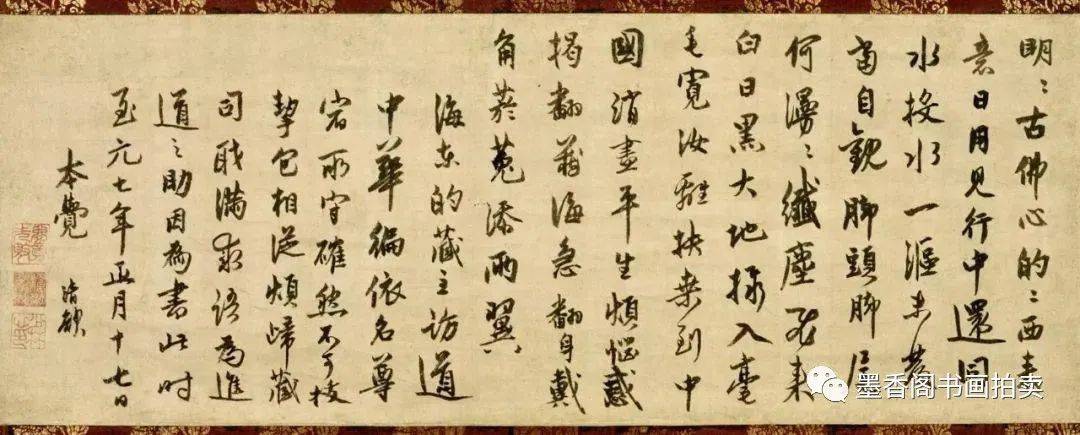 明〻古佛心的〻西来
意日用見行中還同
水投水一漚未發
當自觀脚頭脚尾
何漫〻纖塵来
白日黑大地入毫
毛寛汝離扶桒到中
國消盡平生煩惱惑
揭翻藏海急翻身戴
角菸菟添兩翼
海东的藏主訪道
中華徧依名尊
宿所守確然不可拔
挈包相從頻歸藏
司職滿求語為進
道之助因為書此时
至元七年正月十七日
本覺 清欲
墨香阁书画拍卖